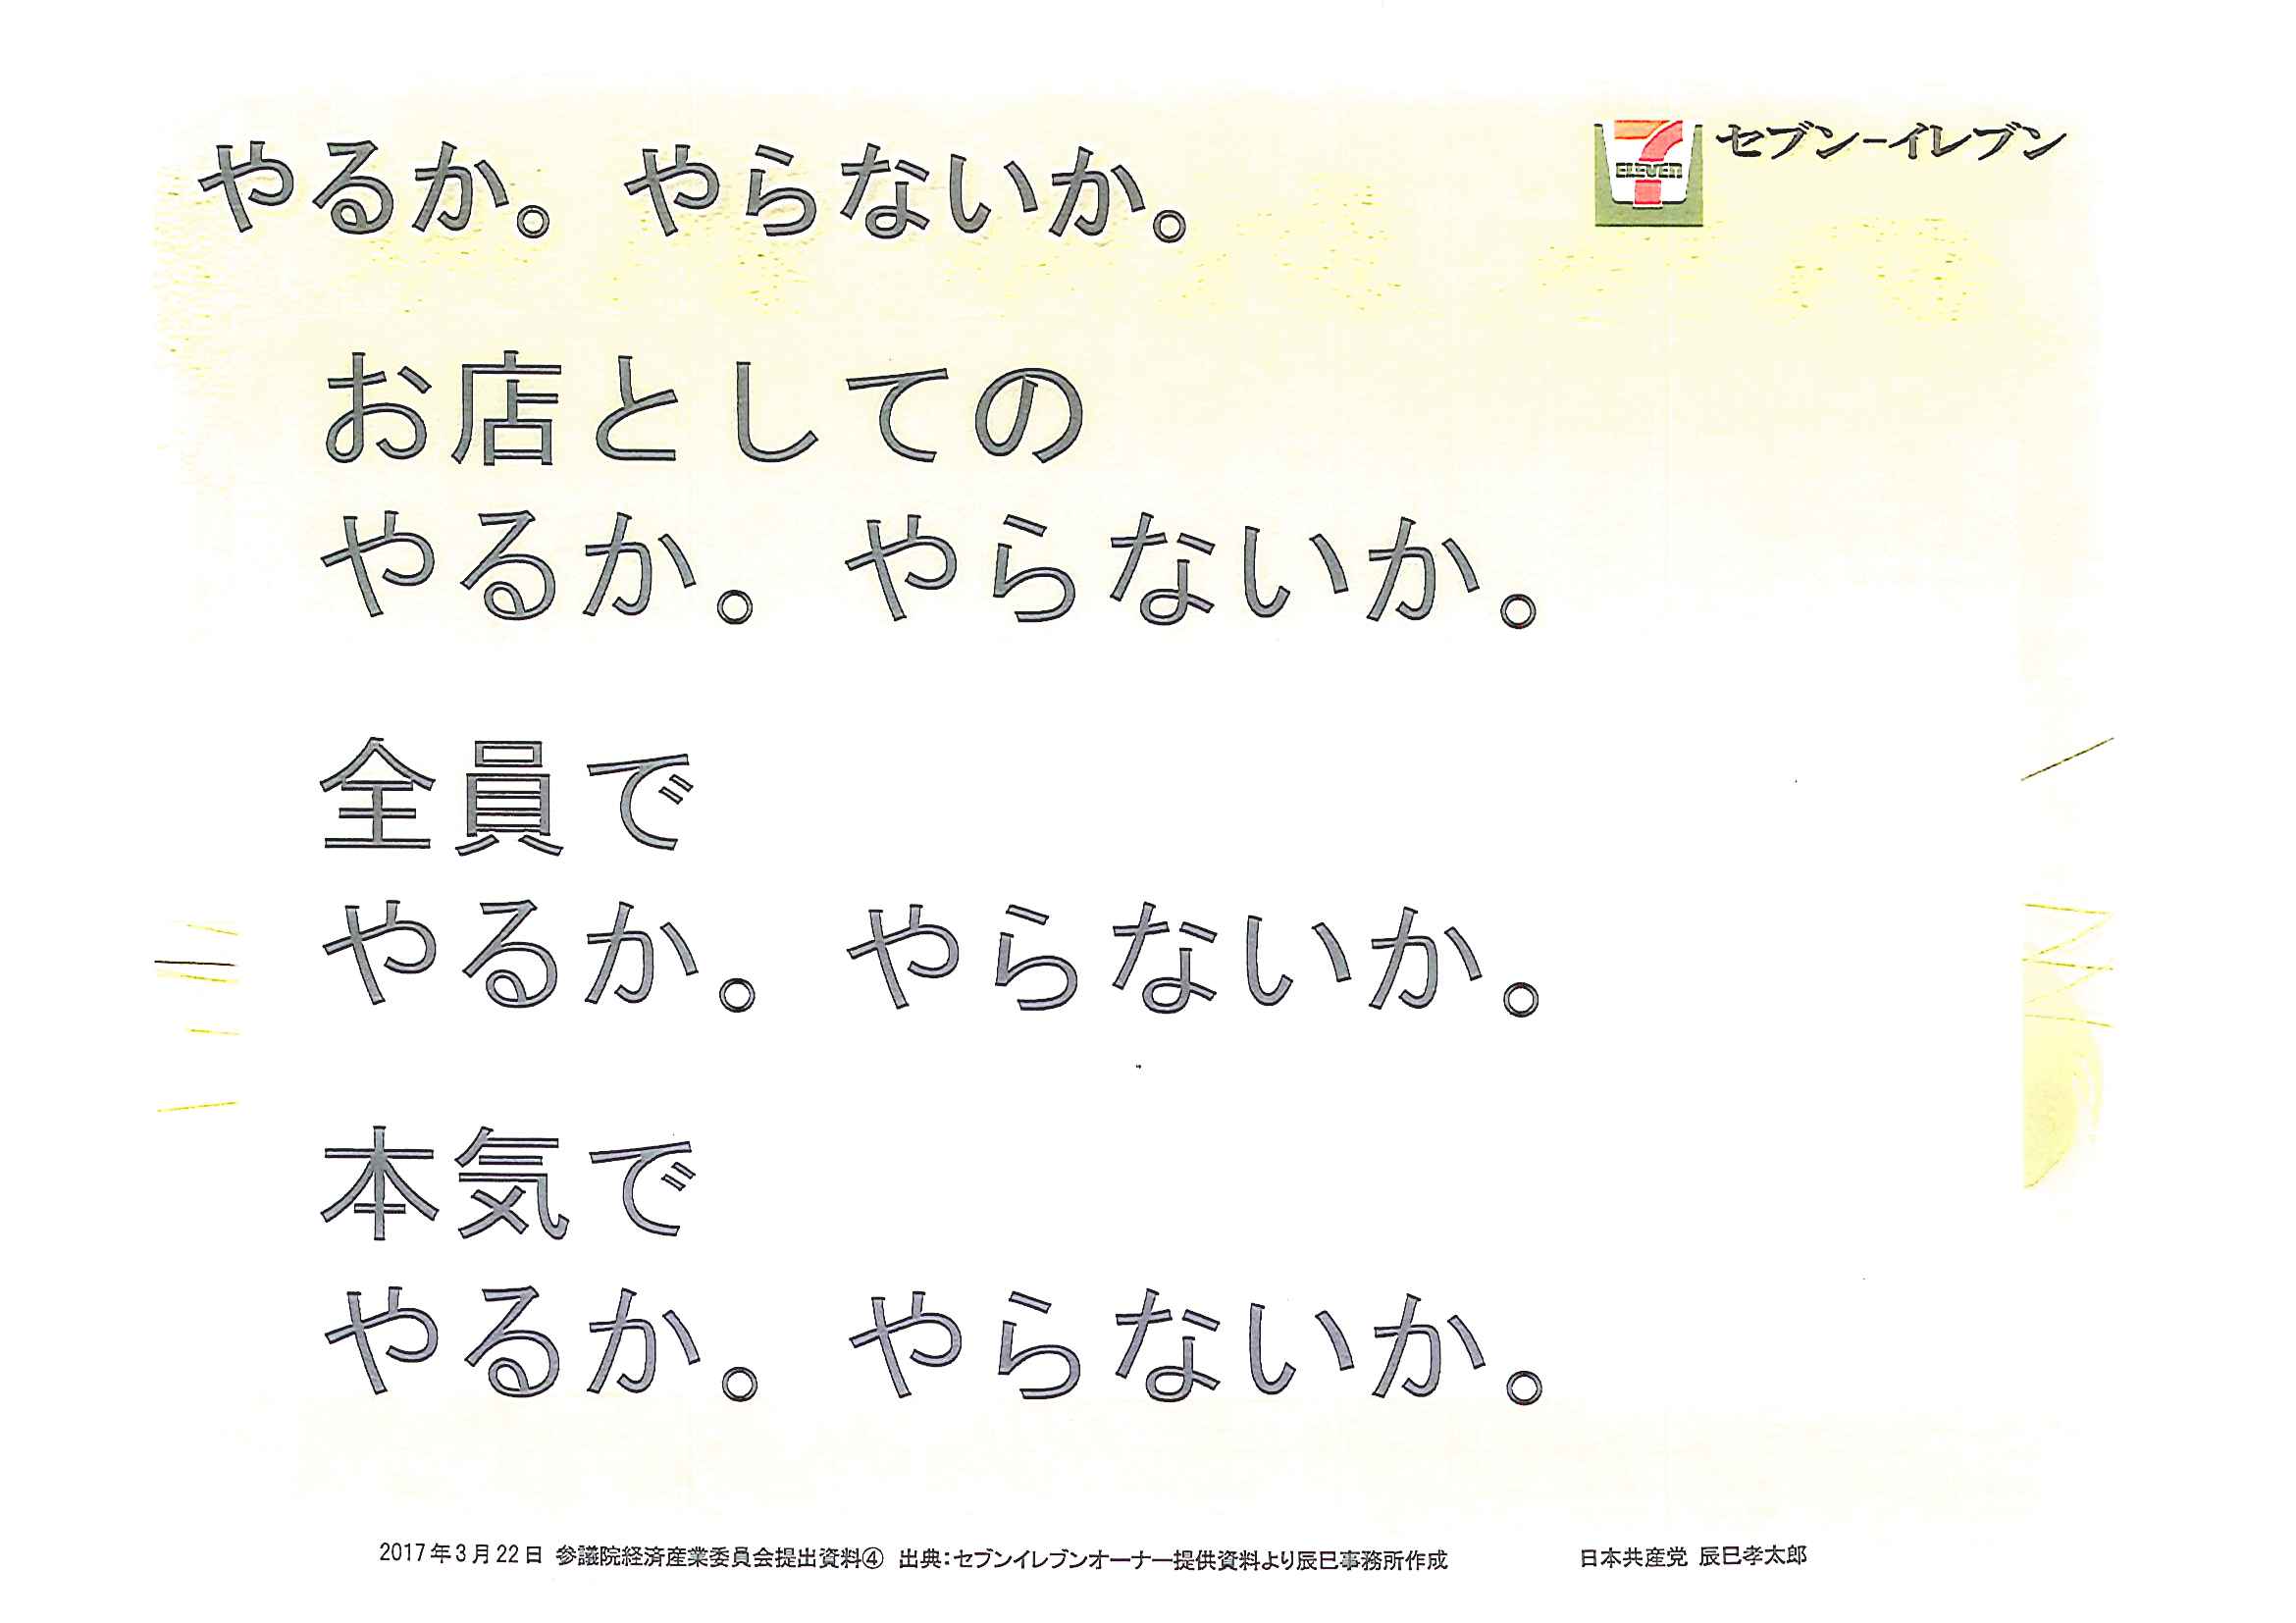 やるか。やらないか。
セブン-イレブン
7
ELEVEN
お店としての
やるか。やらないか。
全員で
やるか。やらないか。
本気で
やるか。やらないか。
2017年3月22日 参議院経済産業委員会提出資料④ 出典：セブンイレブンオーナー提供資料より辰巳事務所作成
日本共産党 辰巳孝太郎